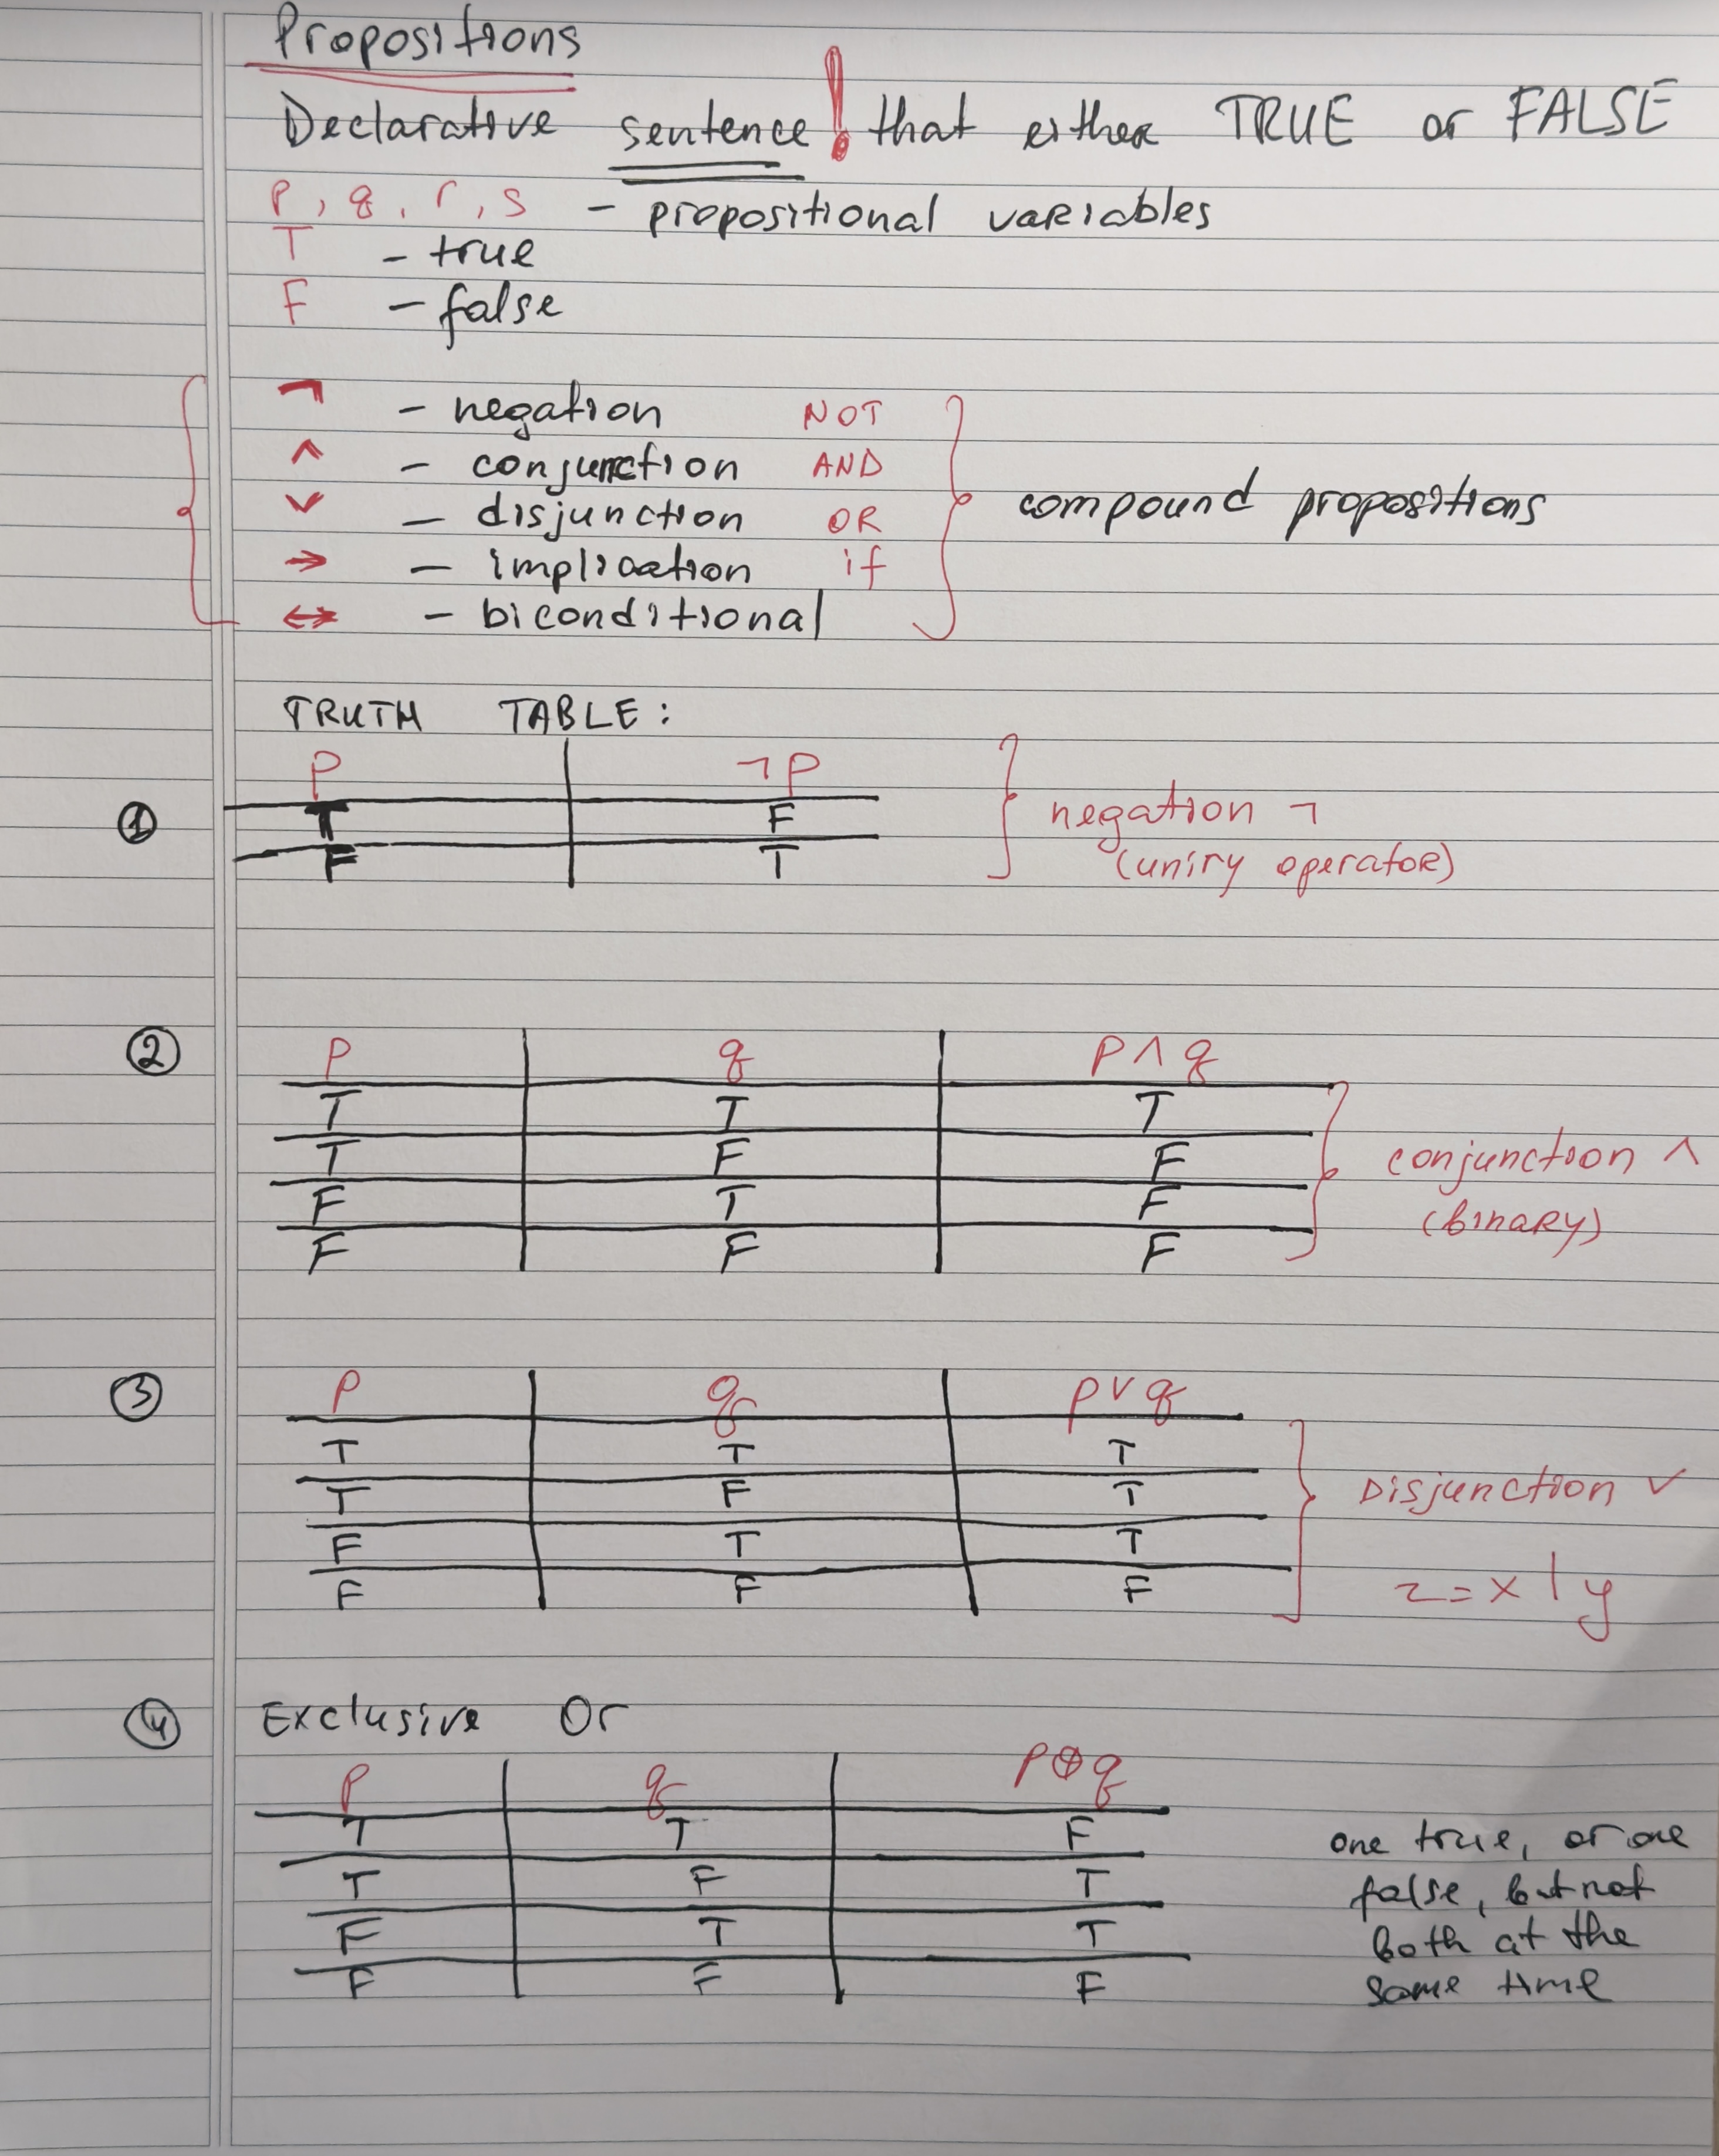 Propositions
Declarative sentence! that either TRUE or FALSE
p, q, r, s - propositional variables
T - true
F - false
¬ - negation NOT
∧ - conjunction AND
∨ - disjunction OR
→ - implication if
↔ - biconditional
compound propositions
TRUTH TABLE:
① P ¬P
T F
F T
negation ¬
(uniry operator)
② P q P ∧ q
T T T
T F F
F T F
F F F
conjunction ∧
(binary)
③ P q p ∨ q
T T T
T F T
F T T
F F F
Disjunction ∨
z = x | y
④ Exclusive Or
P q P ⊕ q
T T F
T F T
F T T
F F F
one true, or one
false, but not
both at the
same time